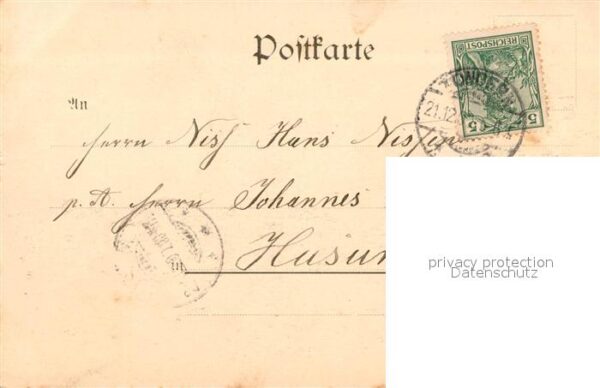 Postkarte
REICHSPOST
5 5
TONDERN
21.12
An
Herrn Niss Hans Nissen
p. A. Herrn Johannes
in Husum
privacy protection
Datenschutz